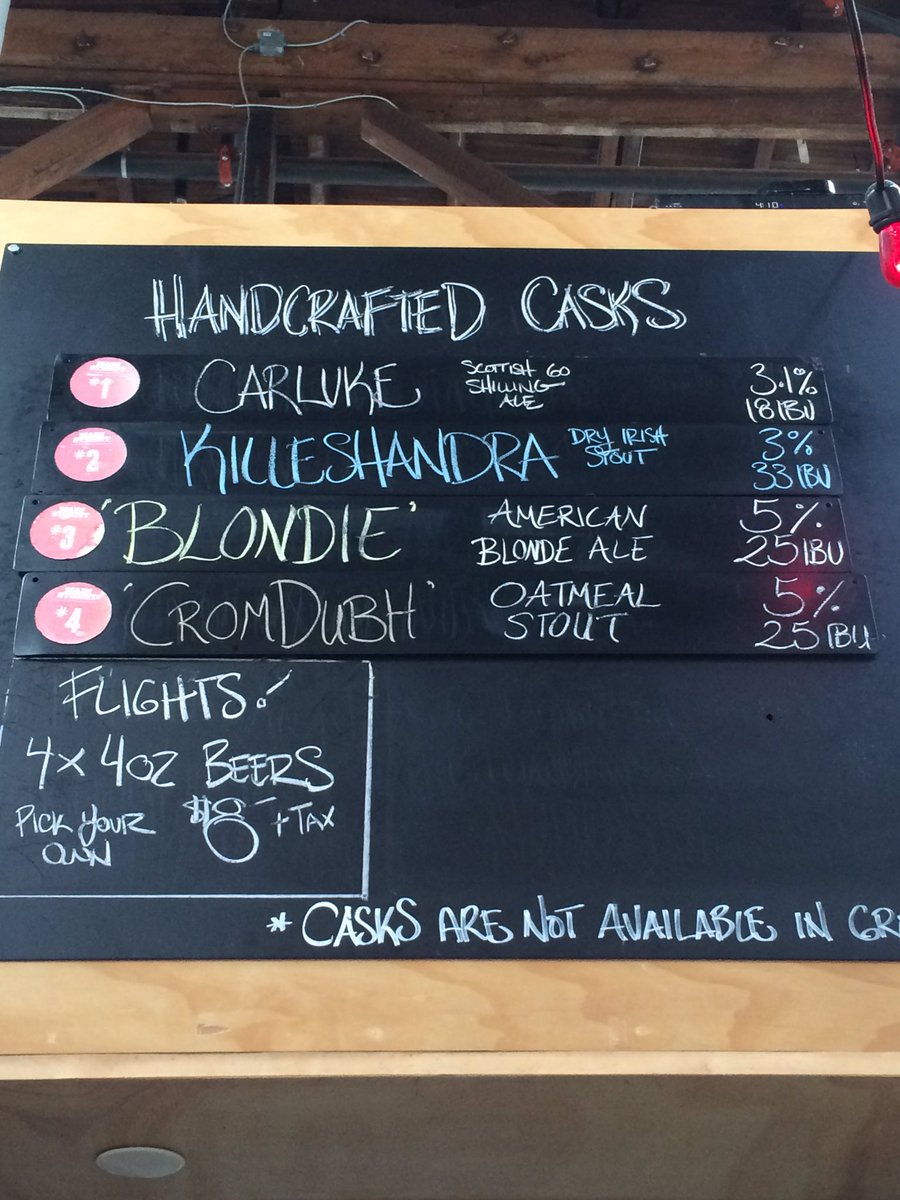 HANDCRAFTED CASKS
MAIN STREET
#1
CARLUKE
SCOTISH 60
SHILLING
ALE
3.1%
18 IBU
MAIN STREET
#2
KILLESHANDRA
DRY IRISH
STOUT
3%
33 IBU
MAIN STREET
#3
'BLONDIE'
AMERICAN
BLONDE ALE
5%
25 IBU
MAIN STREET
#4
'CROMDUBH'
OATMEAL
STOUT
5%
25 IBU
FLIGHTS!
4x 4OZ BEERS
PICK YOUR
OWN
$8 + TAX
* CASKS ARE NOT AVAILABLE IN GR